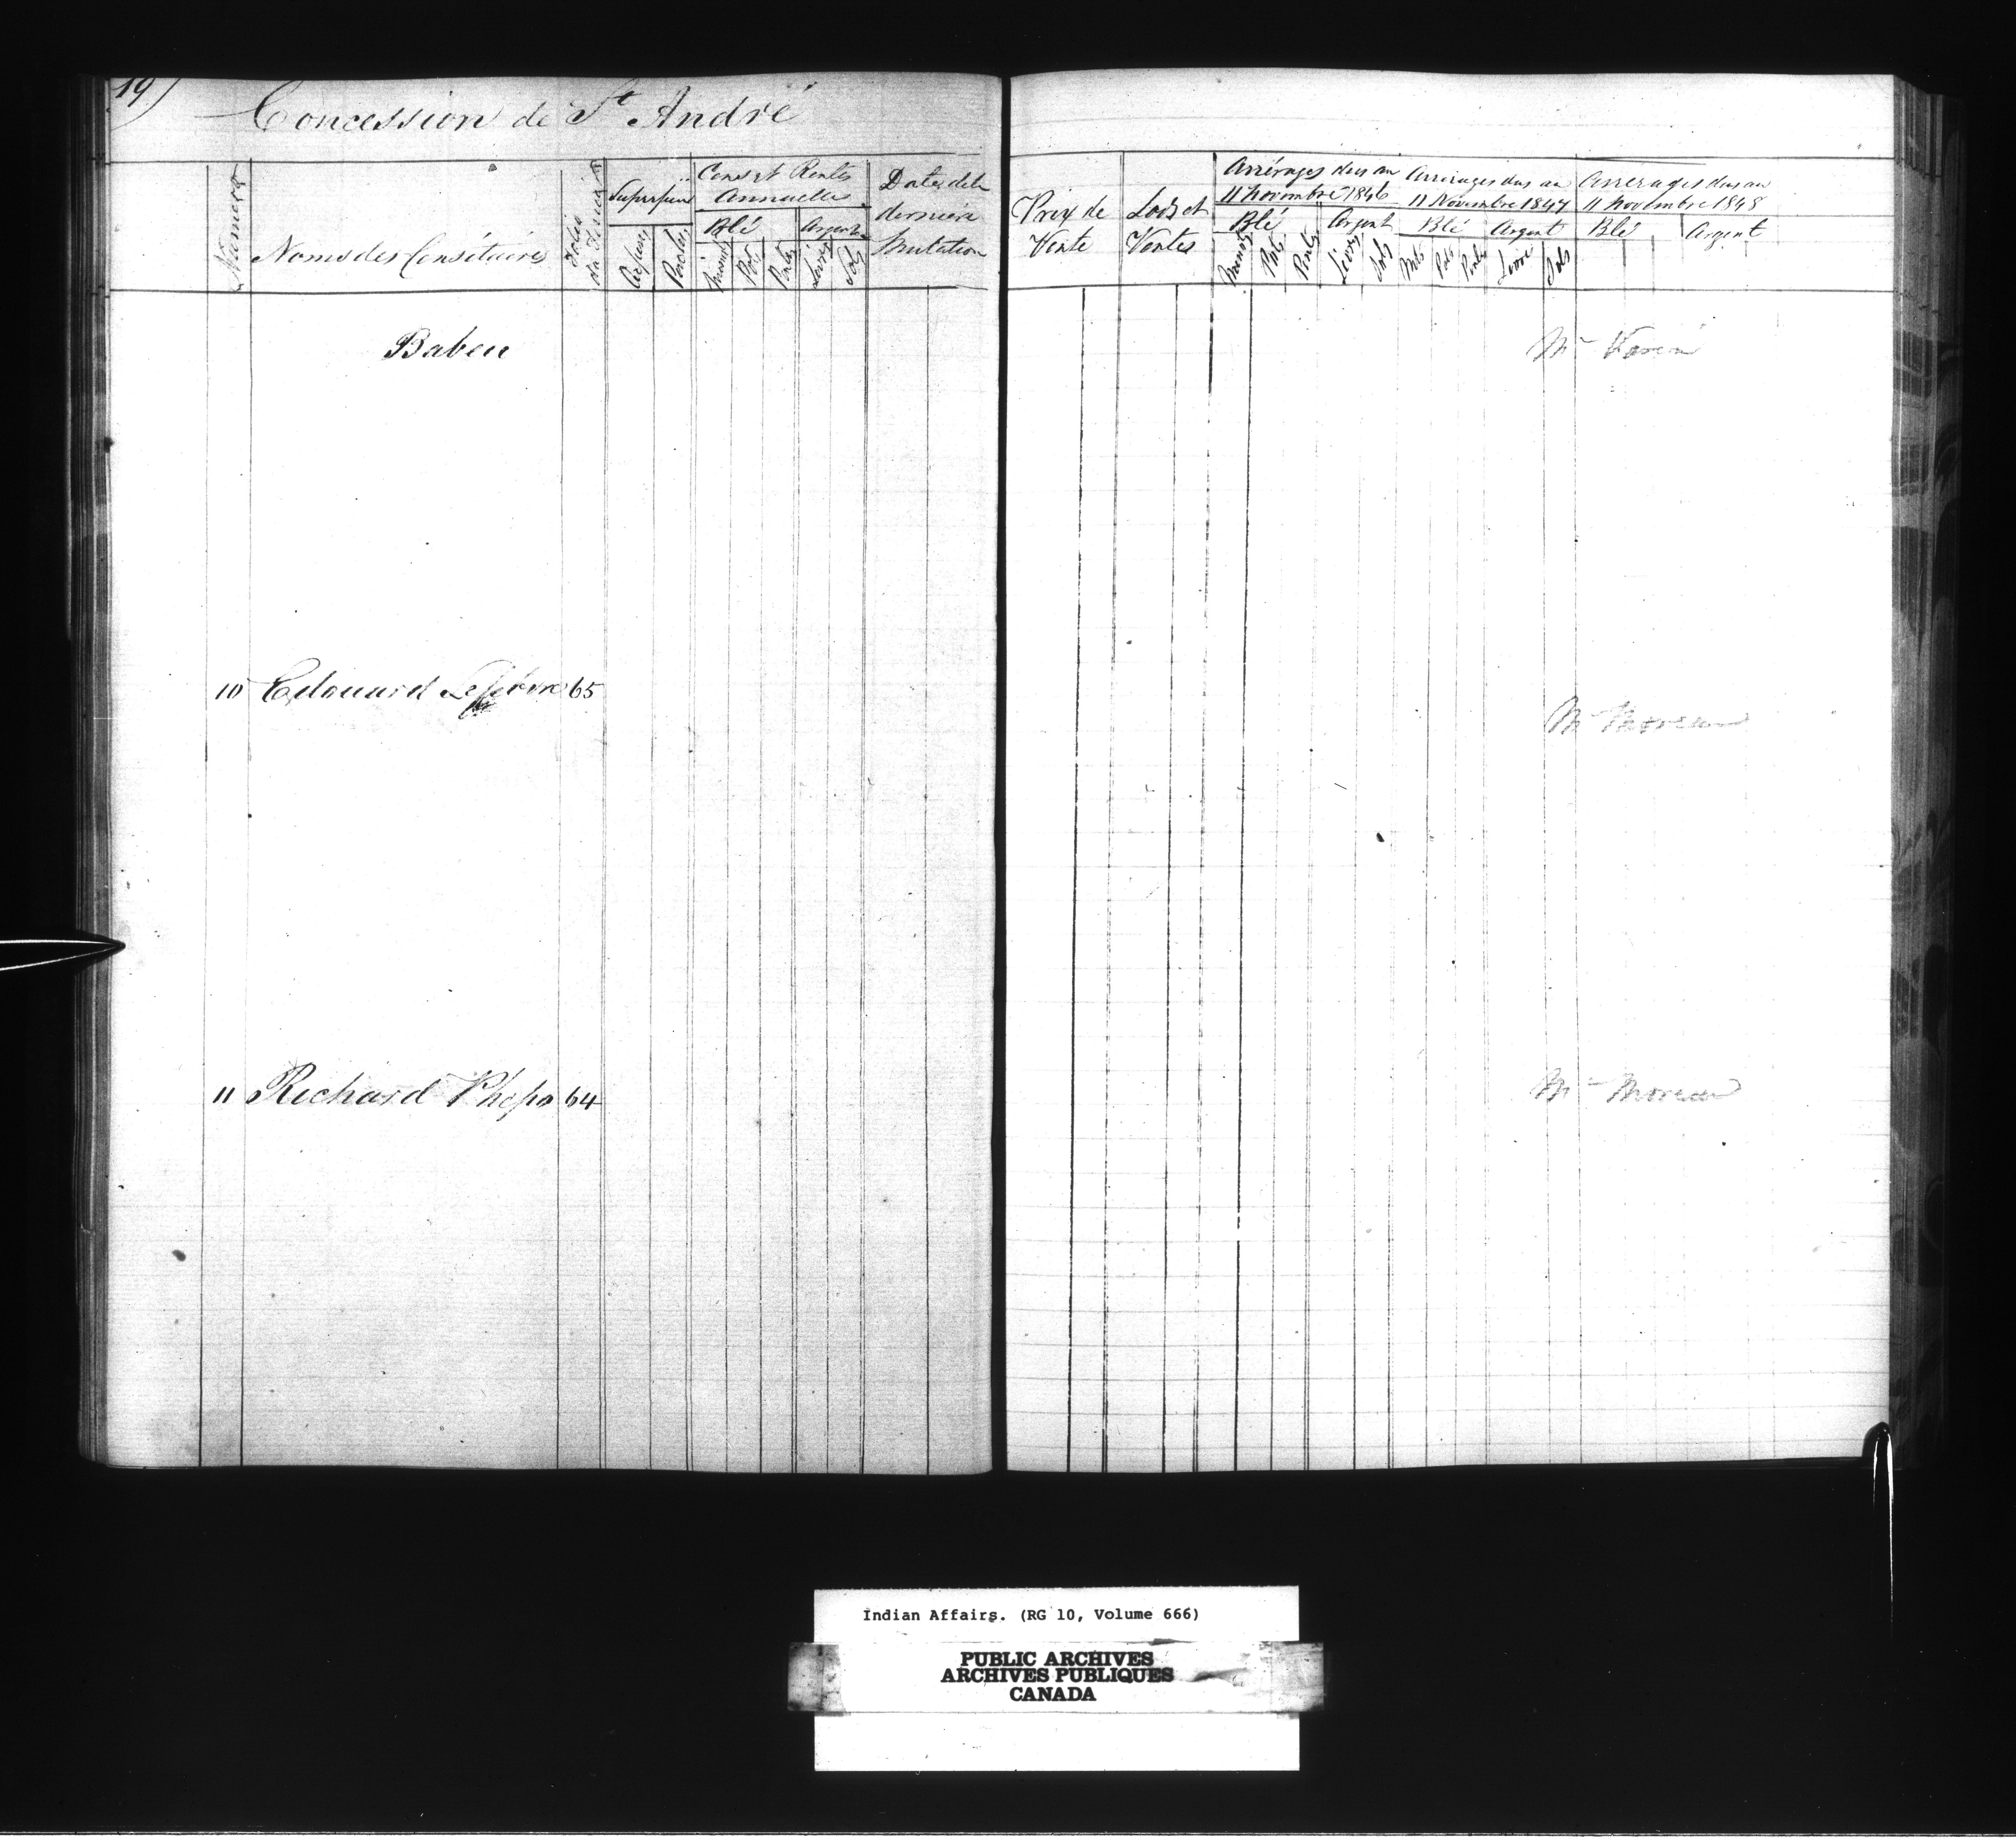 19)
Concession de St André
Numéros
Noms des Censitaires
Folio du Terrier
Superficie
Arpens
Perches
Cens et Rentes Annuelles
Blé
Argent
Minots
Pots
Pintes
Livres
Sols
Date de la dernière Mutation
Prix de Vente
Lods et Ventes
Arrérages dus au 11 Novembre 1846
Blé
Argent
Minots
Pots
Pintes
Livres
Sols
Arrerages dus au 11 Novembre 1847
Blé
Argent
Mts
Pots
Pintes
Livres
Sols
Arrerages dus au 11 Novembre 1848
Blé
Argent
Babeu
Mr
10 Edouard Lefebvre 65
Mr Moreau
11 Richard 64
Mr Moreau
Indian Affairs. (RG 10, Volume 666)
PUBLIC ARCHIVES
ARCHIVES PUBLIQUES
CANADA